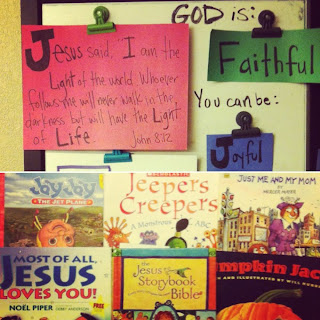 GOD is:
Jesus said, "I am the
Light of the world. Whoever
follows me will never walk in the
darkness but will have the Light
of Life
John 8:12
Faithful
You can be:
Joyful
Jay Jay
THE JET PLANE
SCHOLASTIC
Jeepers
Creepers
A Monstrous ABC
JUST ME AND MY MOM
BY MERCER MAYER
MOST OF ALL,
JESUS
LOVES YOU!
NOËL PIPER
the
Jesus
Storybook
Bible
Pumpkin Jack